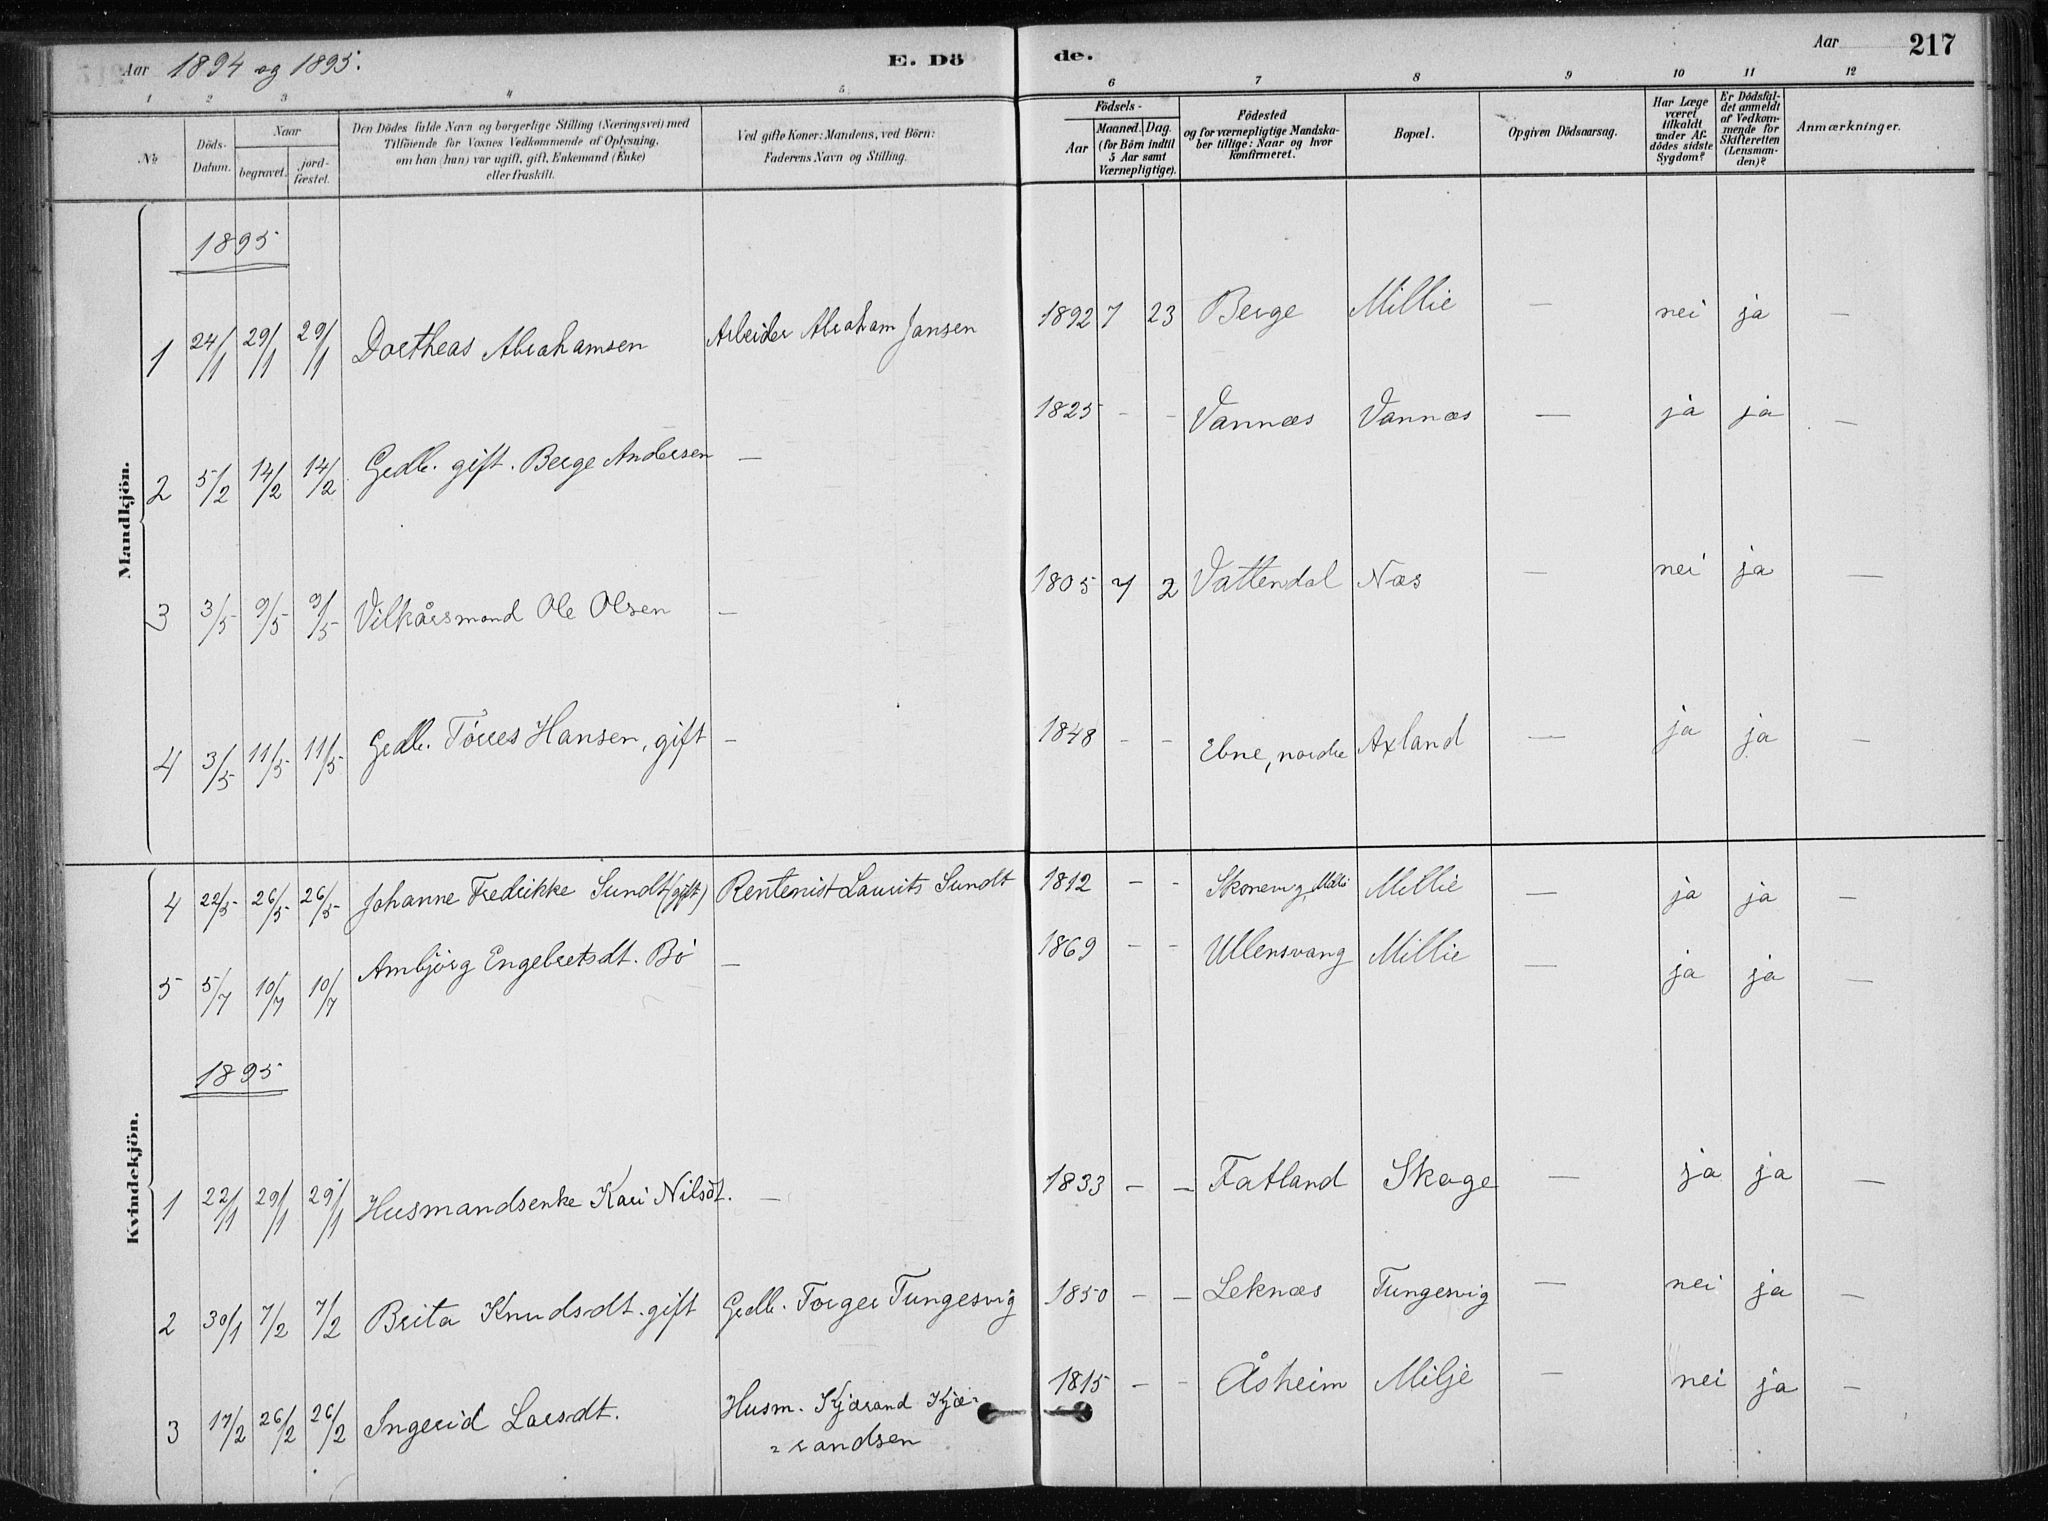 Aar 1894 og 1895. E. Dö de. Aar 217
1 2 3 4 5 6 7 8 9 10 11 12
No
Döds-Datum.
Naar begravet. jord-fæstet.
Den Dödes fulde Navn og borgerlige Stilling (Næringsvei) med
Tilföiende for Voxnes Vedkommende af Oplysning,
om han (hun) var ugift, gift, Enkemand (Enke)
eller fraskilt.
Ved gifte Koner: Mandens, ved Börn:
Faderens Navn og Stilling.
Födsels-
Aar
Maaned. Dag.
(for Börn indtil
5 Aar samt
Værnepligtige).
Födested
og for værnepligtige Mandska-
ber tillige: Naar og hvor
konfirmeret.
Bopæl.
Opgiven Dödsaarsag.
Har Læge
været
tilkaldt
under Af-
dödes sidste
Sygdom?
Er Dödsfal-
det anmeldt
af Vedkom-
mende for
Skifteretten
(Lensman-
den)?
Anmærkninger.
Mandkjön.
1895
1 24/1 29/1 29/1 Dortheas Abrahamsen Arbeider Abraham Jansen 1892 7 23 Berge Millie — nei ja —
2 5/2 14/2 14/2 Grdbr. gift. Berge Andersen — 1825 - - Vannæs Vannæs — ja ja —
3 3/5 9/5 9/5 Vilkårsmand Ole Olsen — 1805 7 2 Vattendal Næs — nei ja —
4 3/5 11/5 11/5 Grdbr. Tørres Hansen, gift — 1848 - - Ebne, nordre Axland — ja ja —
Kvindekjön.
4 22/5 26/5 26/5 Johanne Fredrikke Sundt (gift) Rentenist Laurits Sundt 1812 - - Skonevig, Millie — ja ja —
5 5/7 10/7 10/7 Ambjørg Engebretsdt. Bø — 1869 - - Ullensvang Millie — ja ja —
1895
1 22/1 29/1 29/1 Husmandsenke Kari Nilsdt. — 1833 - - Fatland Skoge — ja ja —
2 30/1 7/2 7/2 Brita Knudsdt. gift Grdbr. Torger Tungesvig 1850 - - Leknæs Tungesvig — nei ja —
3 17/2 26/2 26/2 Ingerid Larsdt. Husm. Kjærand Kjæ- 1815 - - Åsheim Milje — nei ja —
randsen